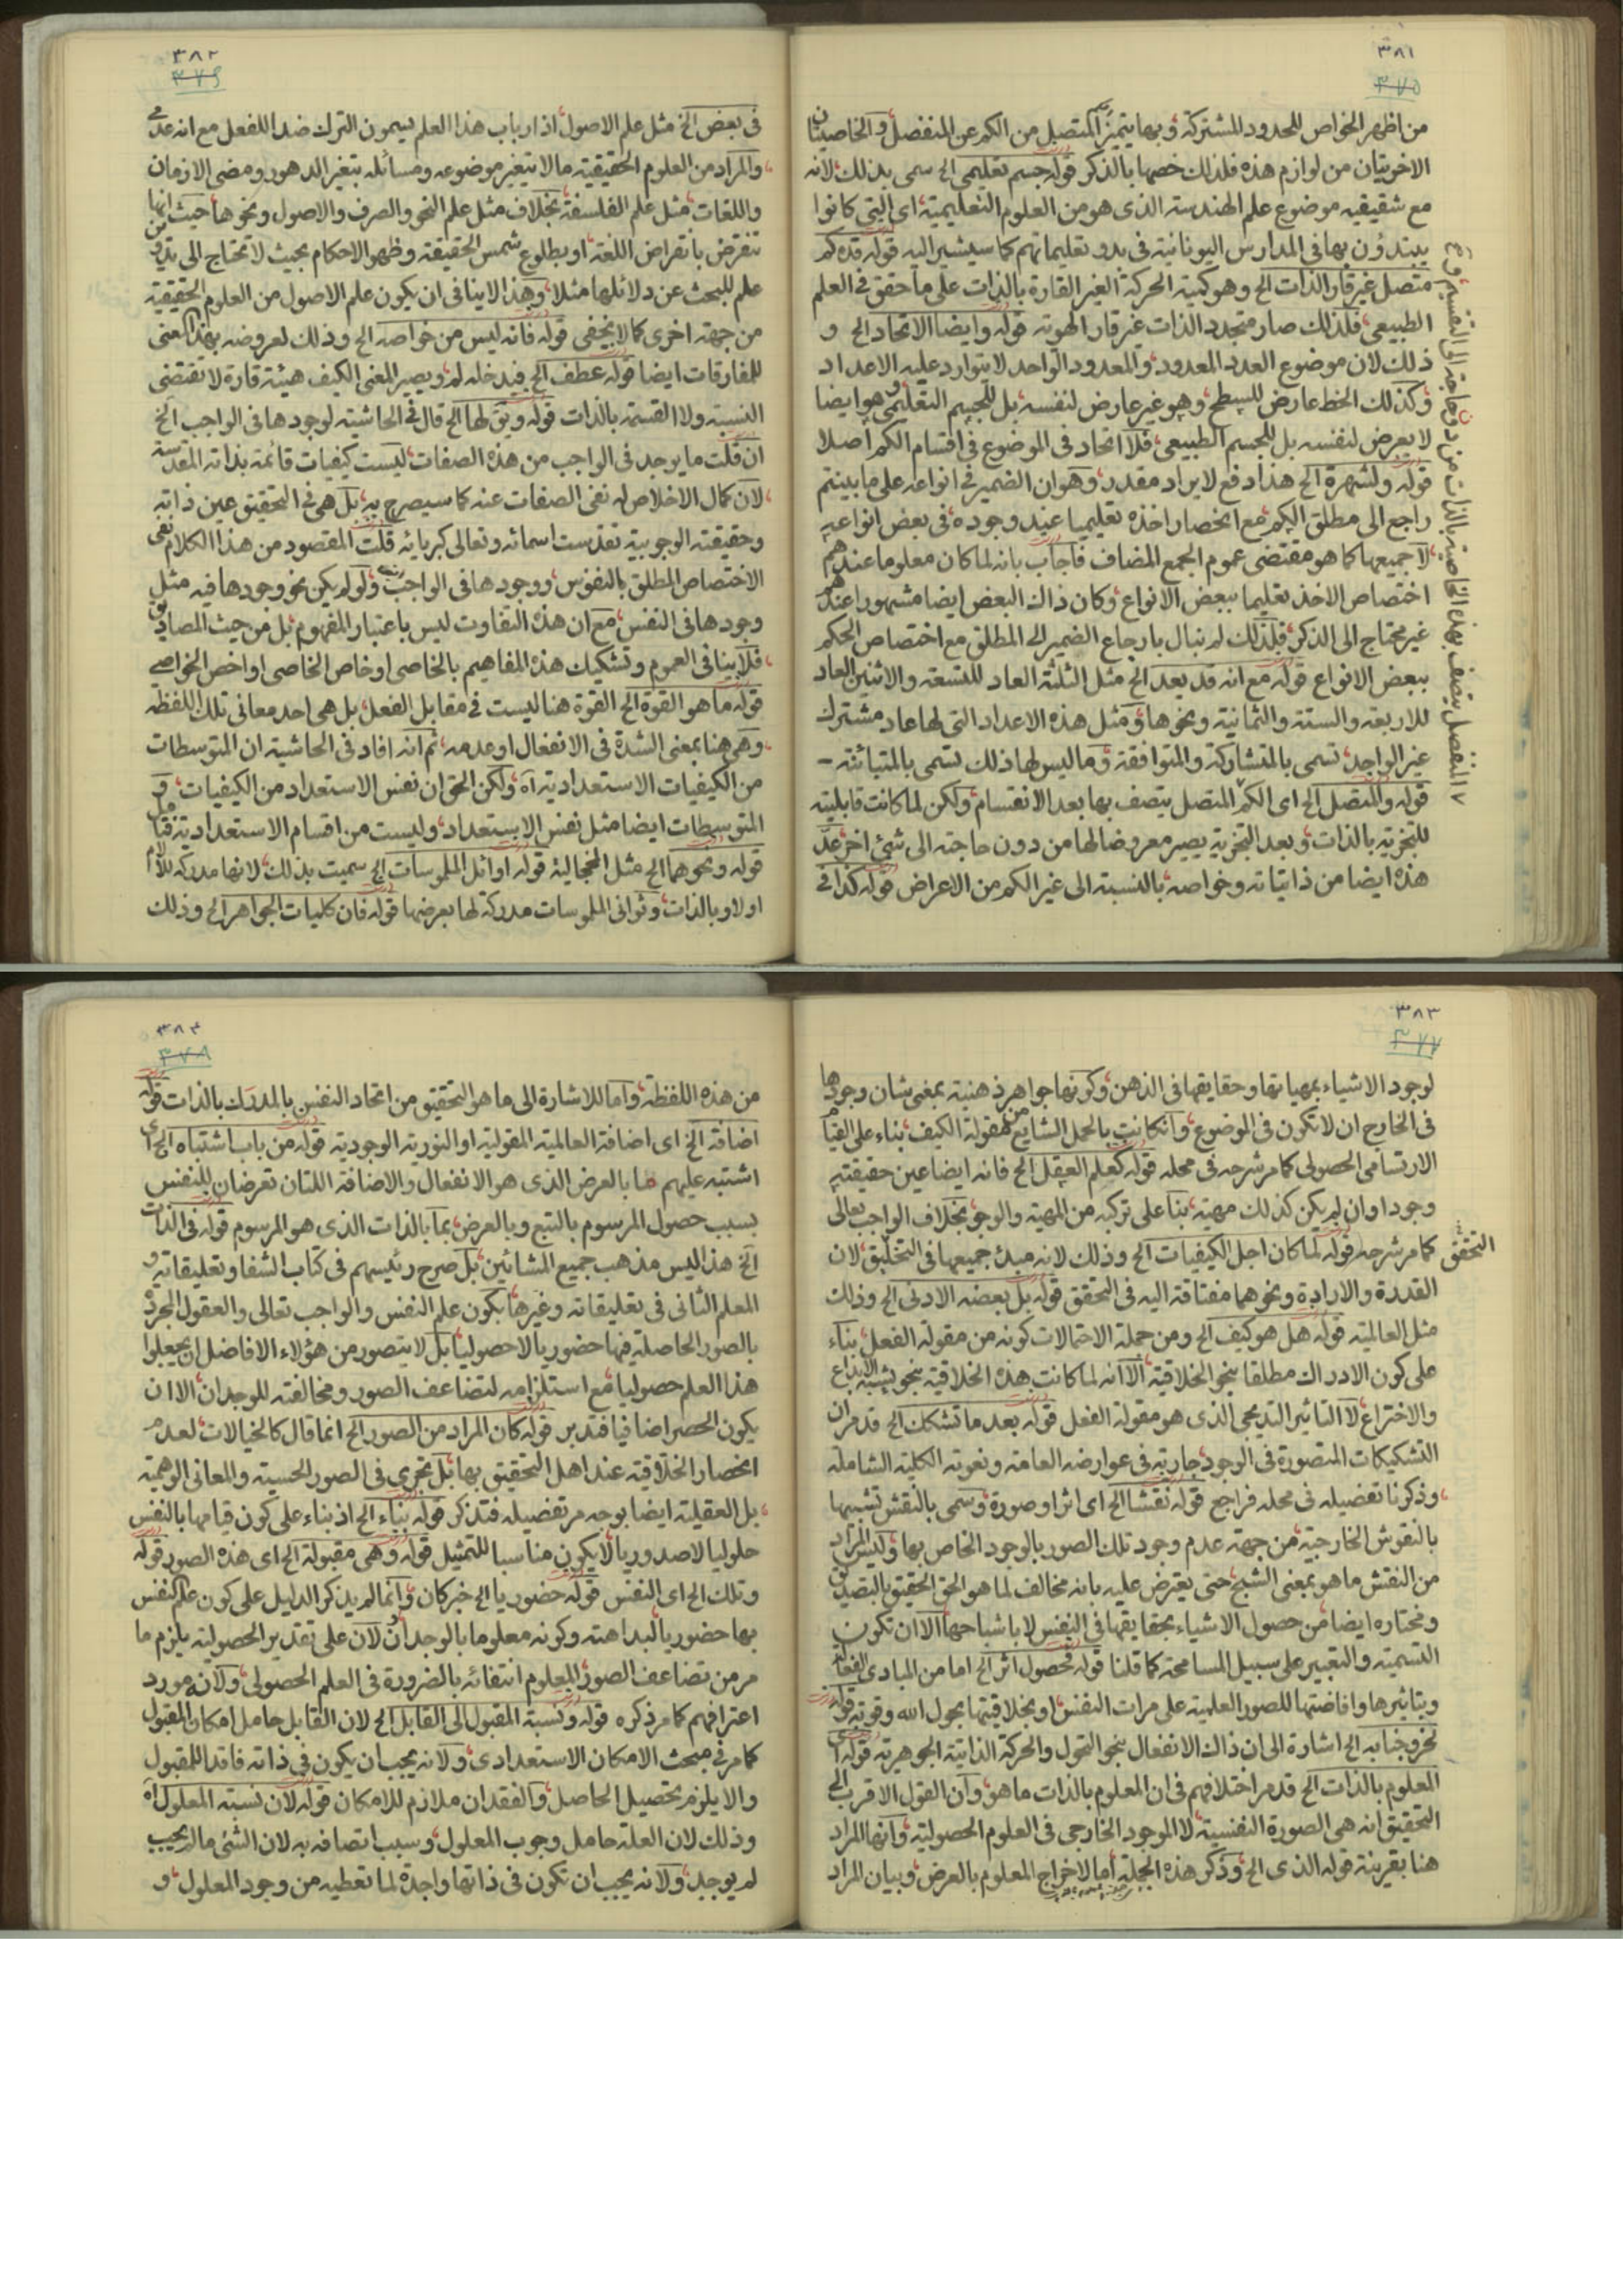 ٣٨١
٣٧٥
من اظهر الخواص للحدود المشتركة وبها يتميز المتصل من الكم عن المنفصل والخاصيتان
الاخريتان من لوازم هذه فلذلك خصها بالذكر قوله جسم تعليمي الخ سمى بذلك لانه
مع شقيقيه موضوع علم الهندسة الذى هو من العلوم التعليمية اى التي كانوا
يبتدؤن بها فى المدارس اليونانية فى بدو تعليماتهم كما سيشير اليه قوله قده كم
متصل غير قار الذات الخ وهو كمية الحركة الغير القارة بالذات على ما حقق فى العلم
الطبيعى فلذلك صار متجدد الذات غير قار الهوية قوله وايضا الاتحاد الخ و
ذلك لان موضوع العدد المعدود والمعدود الواحد لا يتوارد عليه الاعداد
وكذلك الخط عارض للسطح وهو غير عارض لنفسه بل للجسم التعليمى وهو ايضا
لا يعرض لنفسه بل للجسم الطبيعى فلا اتحاد فى الموضوع فى اقسام الكم اصلا
قوله ولشهرة الخ هذا دفع لايراد مقدر وهو ان الضمير فى انواعه على ما بينتم
راجع الى مطلق الكم مع انحصار اخذه تعليميا عند وجوده فى بعض انواعه
لا جميعها كما هو مقتضى عموم الجمع المضاف فاجاب بانه لما كان معلوما عندهم
اختصاص الاخذ تعليما ببعض الانواع وكان ذاك البعض ايضا مشهورا عندهم
غير محتاج الى الذكر فلذلك لم نبال بارجاع الضمير الى المطلق مع اختصاص الحكم
ببعض الانواع قوله مع انه قد يعد الخ مثل الثلثة العاد للتسعة والاثنين العاد
للاربعة والستة والثمانية ونحوها ومثل هذه الاعداد التى لها عاد مشترك
غير الواحد تسمى بالمتشاركة والمتوافقة وما ليس لها ذلك تسمى بالمتبائنة
قوله والمتصل الخ اى الكم المتصل يتصف بها بعد الانقسام ولكن لما كانت قابلية
للتجزية بالذات وبعد التجزية يصير معروضا لها من دون حاجة الى شئ اخر عدّ
هذه ايضا من ذاتياته وخواصه بالنسبة الى غير الكم من الاعراض قوله كذا فى
المنفصل يتصف بهذه الخاصية بالذات من دون حاجة الى التقسيم
٣٨٢
٣٧٦
فى بعض الخ مثل علم الاصول اذ ارباب هذا العلم يسمون الترك ضدا للفعل مع انه عدمى
والمراد من العلوم الحقيقية ما لا يتغير موضوعه ومسائله بتغير الدهور ومضى الازمان
واللغات مثل علم الفلسفة بخلاف مثل علم النحو والصرف والاصول ونحوها حيث انها
تنقرض بانقراض اللغة او بطلوع شمس الحقيقة وظهور الاحكام بحيث لا تحتاج الى تدوين
علم للبحث عن دلائلها مثلا وهذا لا ينافى ان يكون علم الاصول من العلوم الحقيقية
من جهة اخرى كما لا يخفى قوله فانه ليس من خواصه الخ وذلك لعروضه بهذا المعنى
للمفارقات ايضا قوله عطف الخ فيدخله لم ويصير المعنى الكيف هيئة قارة لا تقتضى
النسبة ولا القسمة بالذات قوله ويق لها الخ قال فى الحاشية لوجودها فى الواجب الخ
ان قلت ما يوجد فى الواجب من هذه الصفات ليست كيفيات قائمة بذاته المقدسة
لان كمال الاخلاص له نفى الصفات عنه كما سيصرح به بل هى فى التحقيق عين ذاته
وحقيقته الوجوبية تقدست اسمائه وتعالى كبريائه قلت المقصود من هذا الكلام نفى
الاختصاص المطلق بالنفوس ووجودها فى الواجب ولو لم يكن نحو وجودها فيه مثل
وجودها فى النفس مع ان هذه التفاوت ليس باعتبار المفهوم بل من حيث المصاديق
فلا ينافى العموم وتشكيك هذه المفاهيم بالخاصى او خاص الخاصى او اخص الخواصى
قوله ما هو القوة الخ القوة هنا ليست فى مقابل الفعل بل هى احد معانى تلك اللفظة
وهى هنا بمعنى الشدة فى الانفعال او عدمه ثم انه افاد فى الحاشية ان المتوسطات
من الكيفيات الاستعدادية اه ولكن الحق ان نفس الاستعداد من الكيفيات و
المتوسطات ايضا مثل نفس الاستعداد وليست من اقسام الاستعدادية فتأمل
قوله ونحوهما الخ مثل الخجالية قوله اوائل الملموسات الخ سميت بذلك لانها مدركة للامس
اولا وبالذات وثوانى الملموسات مدركة لها بعرضها قوله فان كليات الجواهر الخ وذلك
٣٨٣
٣٧٧
لوجود الاشياء بمهياتها وحقايقها فى الذهن وكونها جواهر ذهنية بمعنى شان وجودها
فى الخارج ان لا تكون فى الموضوع وان كانت بالحمل الشايع من مقولة الكيف بناء على القيام
الارتسامى الحصولى كما مر شرحه فى محله قوله كعلم العقل الخ فانه ايضا عين حقيقته
وجودا وان لم يكن كذلك مهية بناء على تركبه من المهية والوجود بخلاف الواجب تعالى
كما مر شرحه قوله لما كان اجل الكيفيات الخ وذلك لانه مبدئ جميعها فى التحقق لان
التحقق
القدرة والارادة ونحوهما مفتاقة اليه فى التحقق قوله بل بعضه الادنى الخ وذلك
مثل العالمية قوله هل هو كيف الخ ومن جملة الاحتمالات كونه من مقولة الفعل بناء
على كون الادراك مطلقا بنحو الخلاقية الا انه لما كانت هذه الخلاقية بنحو يشبه الابداع
والاختراع لا التاثير التدريجى الذى هو مقولة الفعل قوله بعد ما تشكك الخ قد مر ان
التشكيكات المتصورة فى الوجود جارية فى عوارضه العامة ونعوته الكلية الشاملة
وذكرنا تفصيله فى محله فراجع قوله نقشا الخ اى اثرا وصورة وسمى بالنقش تشبيها
بالنقوش الخارجية من جهة عدم وجود تلك الصور بالوجود الخاص بها وليس المراد
من النقش ما هو بمعنى الشبح حتى يعترض عليه بانه مخالف لما هو الحق الحقيق بالتصديق
ومختاره ايضا من حصول الاشياء بحقايقها فى النفس لا باشباحها الا ان تكون
التسمية والتعبير على سبيل المسامحة كما قلنا قوله فحصول اثر الخ اما من المبادى الفعالة
وبتاثيرها وافاضتها للصور العلمية على مرات النفس او بخلاقيتها بحول الله وقوته قوله
نخروجنابه الخ اشارة الى ان ذاك الانفعال بنحو التحول والحركة الذاتية الجوهرية قوله اى
المعلوم بالذات الخ قد مر اختلافهم فى ان المعلوم بالذات ما هو وان القول الاقرب الى
التحقيق انه هى الصورة النفسية لا الموجود الخارجى فى العلوم الحصولية وانها المراد
هنا بقرينة قوله الذى الخ وذكر هذه الجملة اما لاخراج المعلوم بالعرض وبيان المراد
٣٨٤
٣٧٨
من هذه اللفظة واما للاشارة الى ما هو التحقيق من اتحاد النفس بالمدرك بالذات قوله
اضافة الخ اى اضافة العالمية المقولية او النورية الوجودية قوله من باب اشتباه الخ اى
اشتبه عليهم ما بالعرض الذى هو الانفعال والاضافة اللتان تعرضان للنفس
بسبب حصول المرسوم بالتبع وبالعرض بما بالذات الذى هو المرسوم قوله فى الذات
الخ هذا ليس مذهب جميع المشائين بل صرح رئيسهم فى كتاب الشفا وتعليقاته و
المعلم الثانى فى تعليقاته وغيرها بكون علم النفس والواجب تعالى والعقول المجردة
بالصور الحاصلة فيها حضوريا لا حصوليا بل لا يتصور من هؤلاء الافاضل ان يجعلوا
هذا العلم حصوليا مع استلزامه لتضاعف الصور ومخالفته للوجدان الا ان
يكون الحصر اضافيا فتدبر قوله كان المراد من الصور الخ انما قال كالخيالات لعدم
انحصار الخلاقية عند اهل التحقيق بها بل تجرى فى الصور الحسية والمعانى الوهمية
بل العقلية ايضا بوجه مر تفصيله فتذكر قوله بناء الخ اذ بناء على كون قيامها بالنفس
حلوليا لا صدوريا لا يكون مناسبا للتمثيل قوله وهى مقبولة الخ اى هذه الصور قوله
وتلك الخ اى النفس قوله حضوريا الخ خبر كان وانما لم يذكر الدليل على كون علم النفس
بها حضوريا لبداهته وكونه معلوما بالوجدان لان على تقدير الحصولية يلزم ما
مر من تضاعف الصور للمعلوم انتفائه بالضرورة فى العلم الحصولى ولانه مورد
اعترافهم كما مر ذكره قوله ونسبة المقبول الى القابل الخ لان القابل حامل امكان المقبول
كما مر فى مبحث الامكان الاستعدادى ولانه يجب ان يكون فى ذاته فاقدا للمقبول
والا يلزم تحصيل الحاصل والفقدان ملازم للامكان قوله لان نسبة المعلول اه
وذلك لان العلة حامل وجوب المعلول وسبب اتصافه به لان الشئ ما لم يجب
لم يوجد ولانه يجب ان تكون فى ذاتها واجدة لما تعطيه من وجود المعلول و